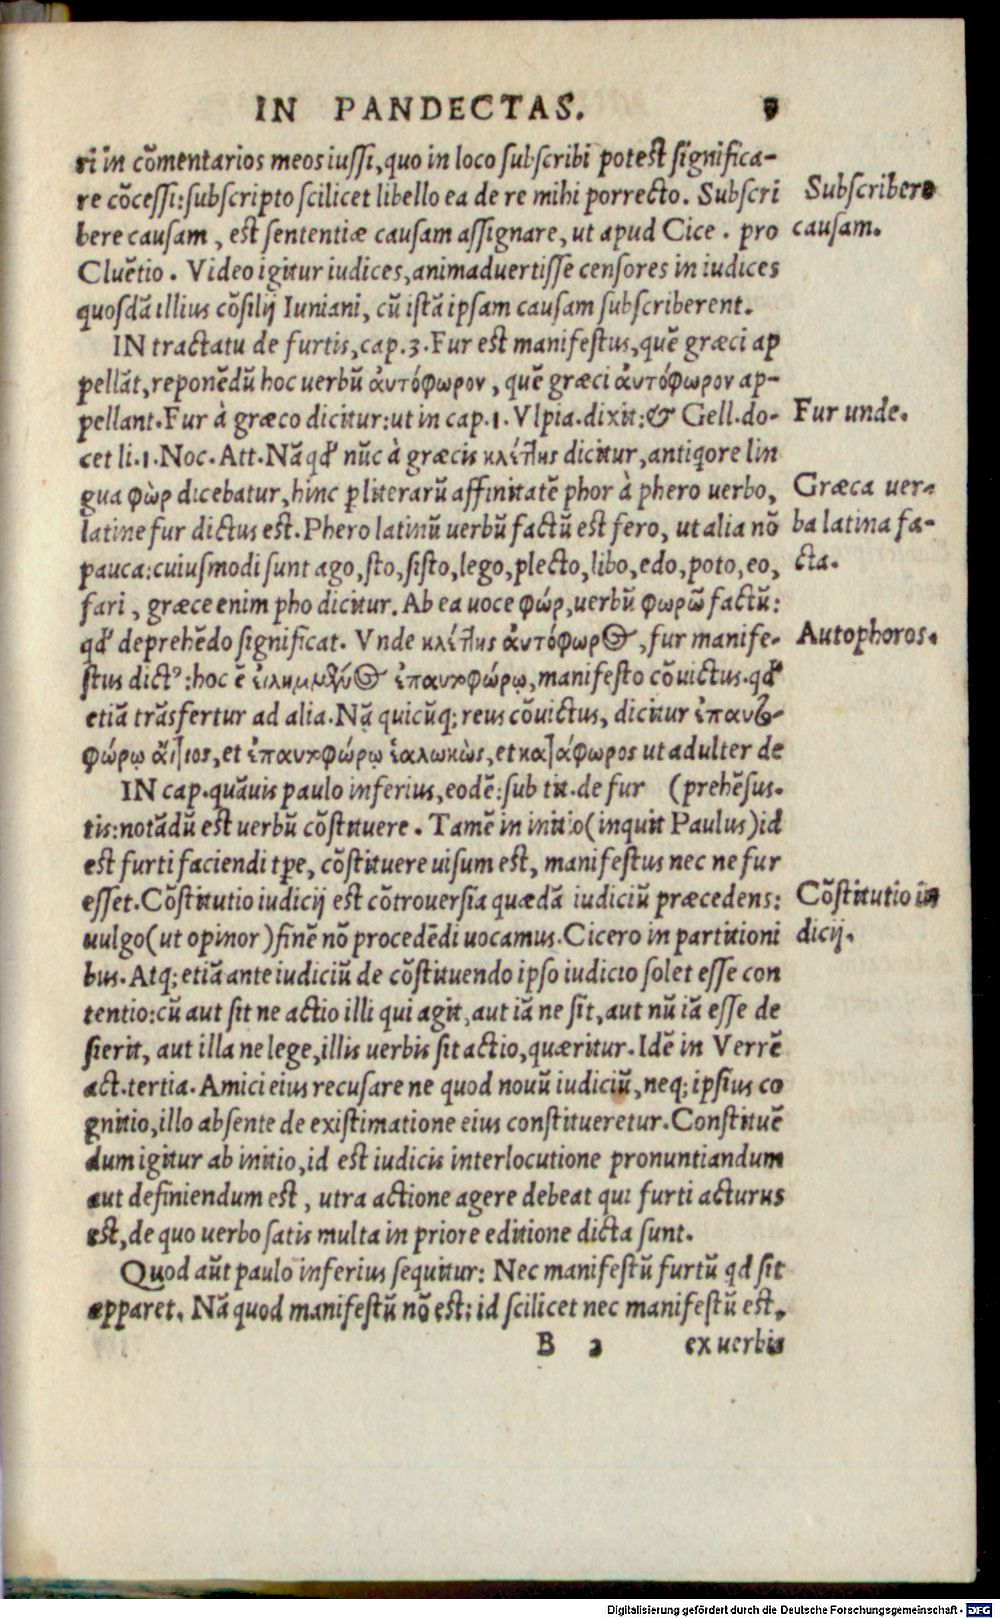 IN PANDECTAS. 9
ri in cõmentarios meos iussi, quo in loco subscribi potest significa-
re cõcessi: subscripto scilicet libello ea de re mihi porrecto. Subscri
Subscribere
bere causam, est sententiæ causam assignare, ut apud Cice. pro
causam.
Cluẽtio. Video igitur iudices, animaduertisse censores in iudices
quosdã illius cõsilij Iuniani, cũ istã ipsam causam subscriberent.
IN tractatu de furtis, cap. 3. Fur est manifestus, quẽ græci ap
pellãt, reponẽdũ hoc uerbũ ἀυτόφωρον, quẽ græci ἀυτόφωρον ap-
pellant. Fur à græco dicitur: ut in cap. 1. Vlpia. dixit: & Gell. do-
Fur unde.
cet li. 1. Noc. Att. Nã qd' nũc à græcis κλέπτης dicitur, antiqore lin
gua φὼρ dicebatur, hinc p literarũ affinitatẽ phor à phero uerbo,
Græca uer-
latine fur dictus est. Phero latinũ uerbũ factũ est fero, ut alia nõ
ba latina fa-
pauca: cuiusmodi sunt ago, sto, sisto, lego, plecto, libo, edo, poto, eo,
cta.
fari, græce enim pho dicitur. Ab ea uoce φώρ, uerbũ φωρῶ factũ:
qd' deprehẽdo significat. Vnde κλέπτης ἀυτόφωρος, fur manife-
Autophoros.
stus dictꝰ: hoc ẽ ἐπαυτοφώρῳ, manifesto cõuictus. qd'
etiã trãsfertur ad alia. Nã quicũq; reus cõuictus, dicitur ἐπαυτο-
φώρῳ ἄξιος, et ἐπαυτοφώρῳ ἑαλωκὼς, et κατάφωρος ut adulter de
IN cap. quãuis paulo inferius, eodẽ: sub tit. de fur (prehẽsus.
tis: notãdũ est uerbũ cõstituere. Tamẽ in initio (inquit Paulus) id
est furti faciendi tpe, cõstituere uisum est, manifestus nec ne fur
esset. Cõstitutio iudicij est cõtrouersia quædã iudiciũ præcedens:
Cõstitutio iu
uulgo (ut opinor) finẽ nõ procedẽdi uocamus. Cicero in partitioni
dicij.
bus. Atq; etiã ante iudiciũ de cõstituendo ipso iudicio solet esse con
tentio: cũ aut sit ne actio illi qui agit, aut iã ne sit, aut nũ iã esse de
sierit, aut illa ne lege, illis uerbis sit actio, quæritur. Idẽ in Verrẽ
act. tertia. Amici eius recusare ne quod nouũ iudiciũ, neq; ipsius co
gnitio, illo absente de existimatione eius constitueretur. Constituẽ
dum igitur ab initio, id est iudicis interlocutione pronuntiandum
aut definiendum est, utra actione agere debeat qui furti acturus
est, de quo uerbo satis multa in priore editione dicta sunt.
Quod aũt paulo inferius sequitur: Nec manifestũ furtũ qd sit
apparet. Nã quod manifestũ nõ est: id scilicet nec manifestũ est,
B 2 ex uerbis
Digitalisierung gefördert durch die Deutsche Forschungsgemeinschaft - DFG